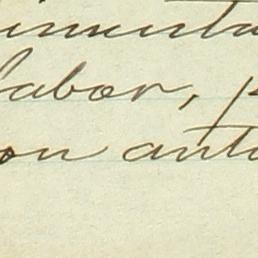 imenta
labor, p
on anta